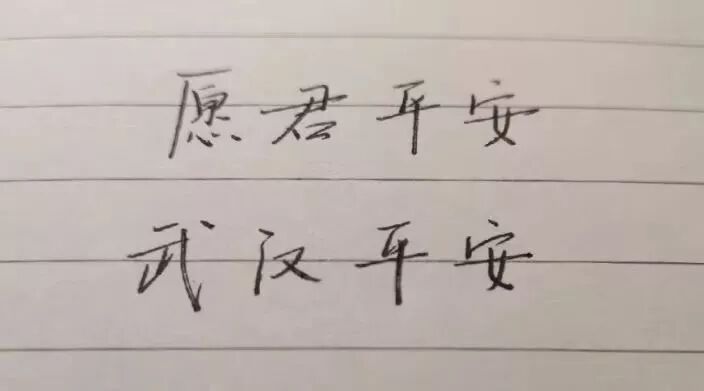 愿君平安
武汉平安